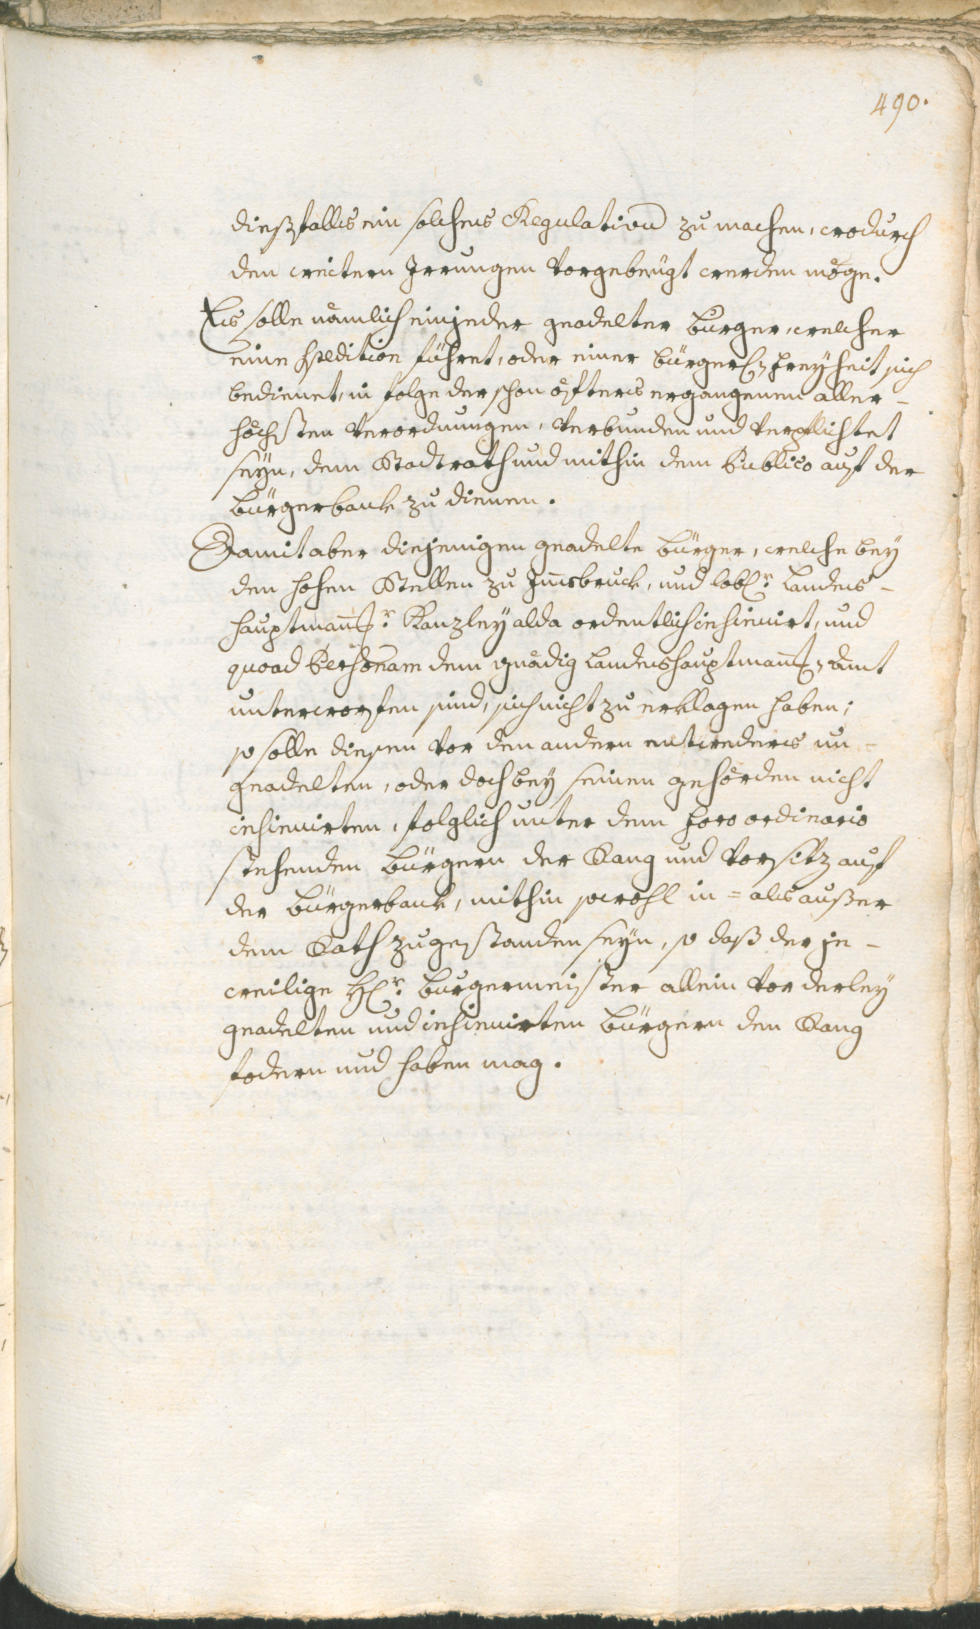 490.
dießfalls ein solches Regulativ zu machen, wodurch
den weitern Irrungen vorgebeugt werden möge.
Es solle nämlich ein jeder geadelter Burger, welcher
eine Spedition führet, oder einer bürgerl: Freyheit sich
bedienet, in Folge der schon öfters ergangenen aller-
höchsten Verordnungen, verbunden und verpflichtet
seyn, dem Stadtrath und mithin dem Publico auf der
Bürgerbank zu dienen.
Damit aber diejenigen geadelte Bürger, welche bey
den hohen Stellen zu Innsbruck, und löbl:r Landes-
hauptmannsch:r Kanzley alda ordentlich insinuirt, und
quoad Personam dem gnädig Landeshauptmannsch: Amt
unterworfen sind, sich nicht zu erklagen haben;
so solle diesen vor den andern entweders un-
geadelten, oder doch bey seinen Gehörden nicht
insinuirten, folglich unter dem Foro ordinario
stehenden Bürgern der Rang und Vorsitz auf
der Bürgerbank, mithin sowohl in= als außer
dem Rath zugestanden seyn, so daß der je-
weilige H:r Burgermeister allein vor derley
geadelten und insinuirten Bürgern den Rang
fodern und haben mag.